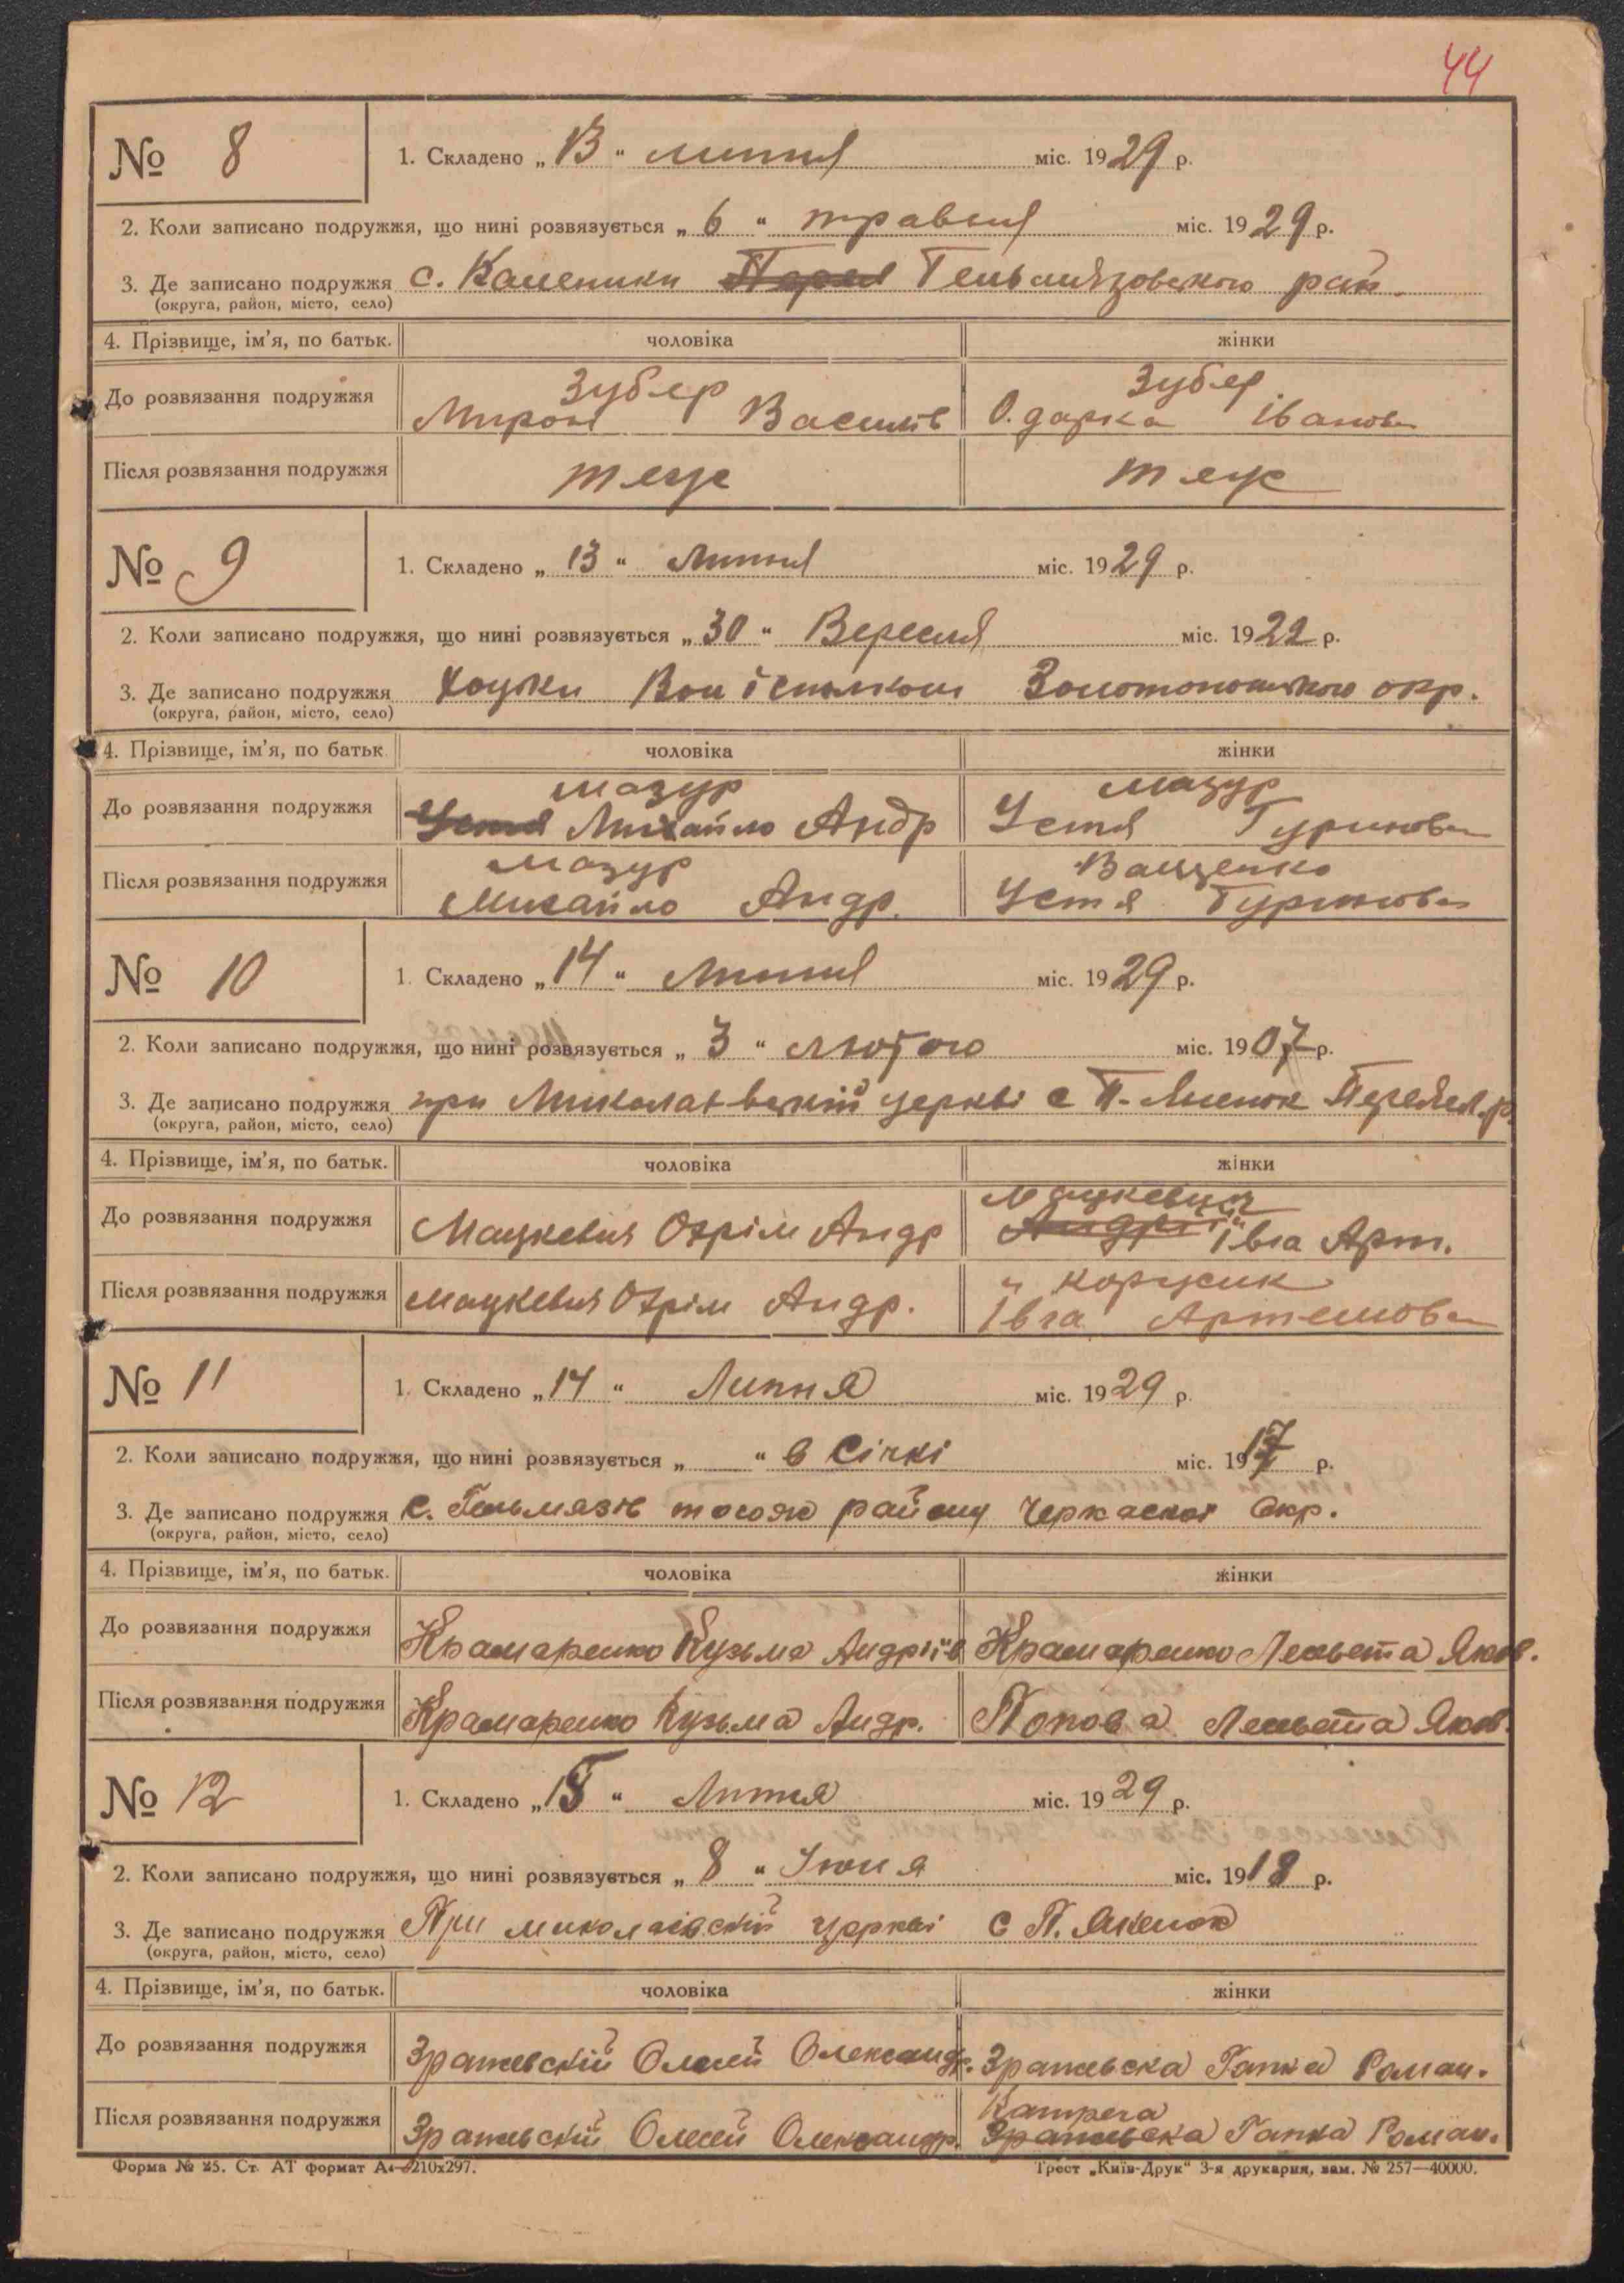 44
№ 8 1. Складено „ 13 “ липня міс. 1929 р.
2. Коли записано подружжя, що нині розвязується „ 6 “ травня міс. 1929 р.
3. Де записано подружжя с. Каленики Гельмязовского рай.
(округа, район, місто, село)
4. Прізвище, ім’я, по батьк. чоловіка жінки
Зубер Зубер
До розвязання подружжя Мирон Василів Одарка Іванов
Після розвязання подружжя теж теж
№ 9 1. Складено „ 13 “ Липня міс. 1929 р.
2. Коли записано подружжя, що нині розвязується „ 30 “ Вересня міс. 1922 р.
3. Де записано подружжя Хоцьки Золотоношського окр.
(округа, район, місто, село)
4. Прізвище, ім’я, по батьк чоловіка жінки
мазур мазур
До розвязання подружжя Устя Михайло Андр Устя Гуринова
мазур Ващенко
Після розвязання подружжя Михайло Андр. Устя Гуринова
№ 10 1. Складено „ 14 “ Липня міс. 1929 р.
2. Коли записано подружжя, що нині розвязується „ 3 “ лютого міс. 1907 р.
3. Де записано подружжя при Миколаївскій церкві с П. Яненок
(округа, район, місто, село)
4. Прізвище, ім’я, по батьк. чоловіка жінки
Мацкевич
До розвязання подружжя Мацкевич Охрім Андр Андрій Івга Арт.
Коржик
Після розвязання подружжя мацкевич Охрім Андр. Івга Артемова
№ 11 1. Складено „ 14 “ Липня міс. 1929 р.
2. Коли записано подружжя, що нині розвязується „ “ в Січні міс. 1917 р.
3. Де записано подружжя с. Гельмязів тогож району Черкаскої Окр.
(округа, район, місто, село)
4. Прізвище, ім’я, по батьк. чоловіка жінки
До розвязання подружжя Крамаренко Кузьма Андріїв Крамаренко Яков.
Після розвязання подружжя Крамаренко Кузьма Андр. Попова Яков.
№ 12 1. Складено „ 15 “ Липня міс. 1929 р.
2. Коли записано подружжя, що нині розвязується „ 8 “ Июня міс. 1918 р.
3. Де записано подружжя При миколаївскій церкві с П. Яненок
(округа, район, місто, село)
4. Прізвище, ім’я, по батьк. чоловіка жінки
До розвязання подружжя Зражевскій Олексій Олександр. Зражевска Ганка Роман.
Катрега
Після розвязання подружжя Зражевскій Олексій Олександр. Зражевска Ганка Роман.
Форма № 25. Ст. АТ формат А4—210х297. Трест „Київ-Друк“ 3-я друкарня, зам. № 257—40000.